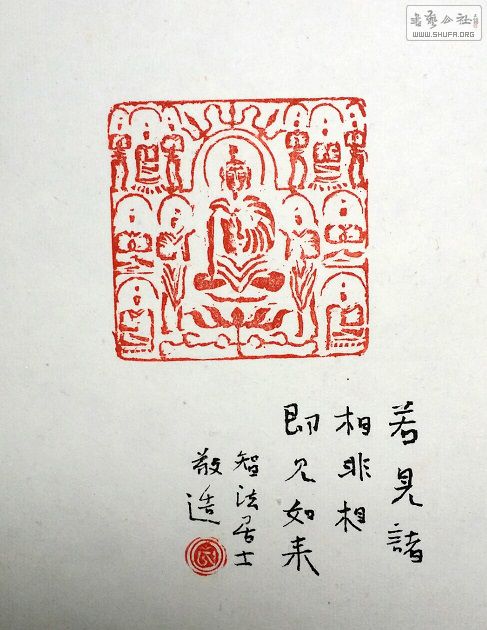 若見諸
相非相
即见如来
智法居士
敬造
书艺公社
WWW.SHUFA.ORG